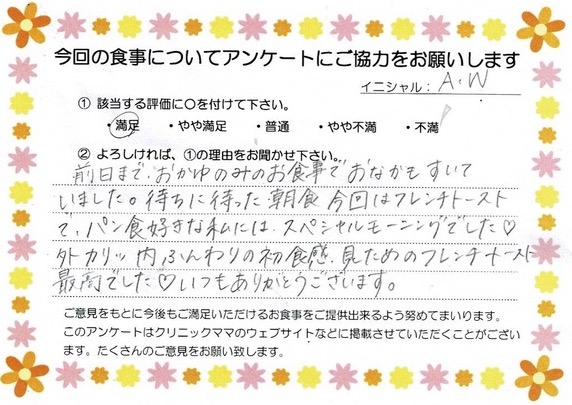 今回の食事についてアンケートにご協力をお願いします
イニシャル： A.W
① 該当する評価に○を付けて下さい。
・満足 ・やや満足 ・普通 ・やや不満 ・不満
② よろしければ、①の理由をお聞かせ下さい。
前日まで、おかゆのみのお食事で おなかも すいて
いました。待ちに待った 朝食 今回はフレンチトースト
で、パン食好きな私には、スペシャルモーニングでした♡
外カリッ 内ふんわりの初食感、見ためのフレンチトースト
最高でした♡いつもありがとうございます。
ご意見をもとに今後もご満足いただけるお食事をご提供出来るよう努めてまいります。
このアンケートはクリニックママのウェブサイトなどに掲載させていただくことがござい
ます。たくさんのご意見をお願い致します。